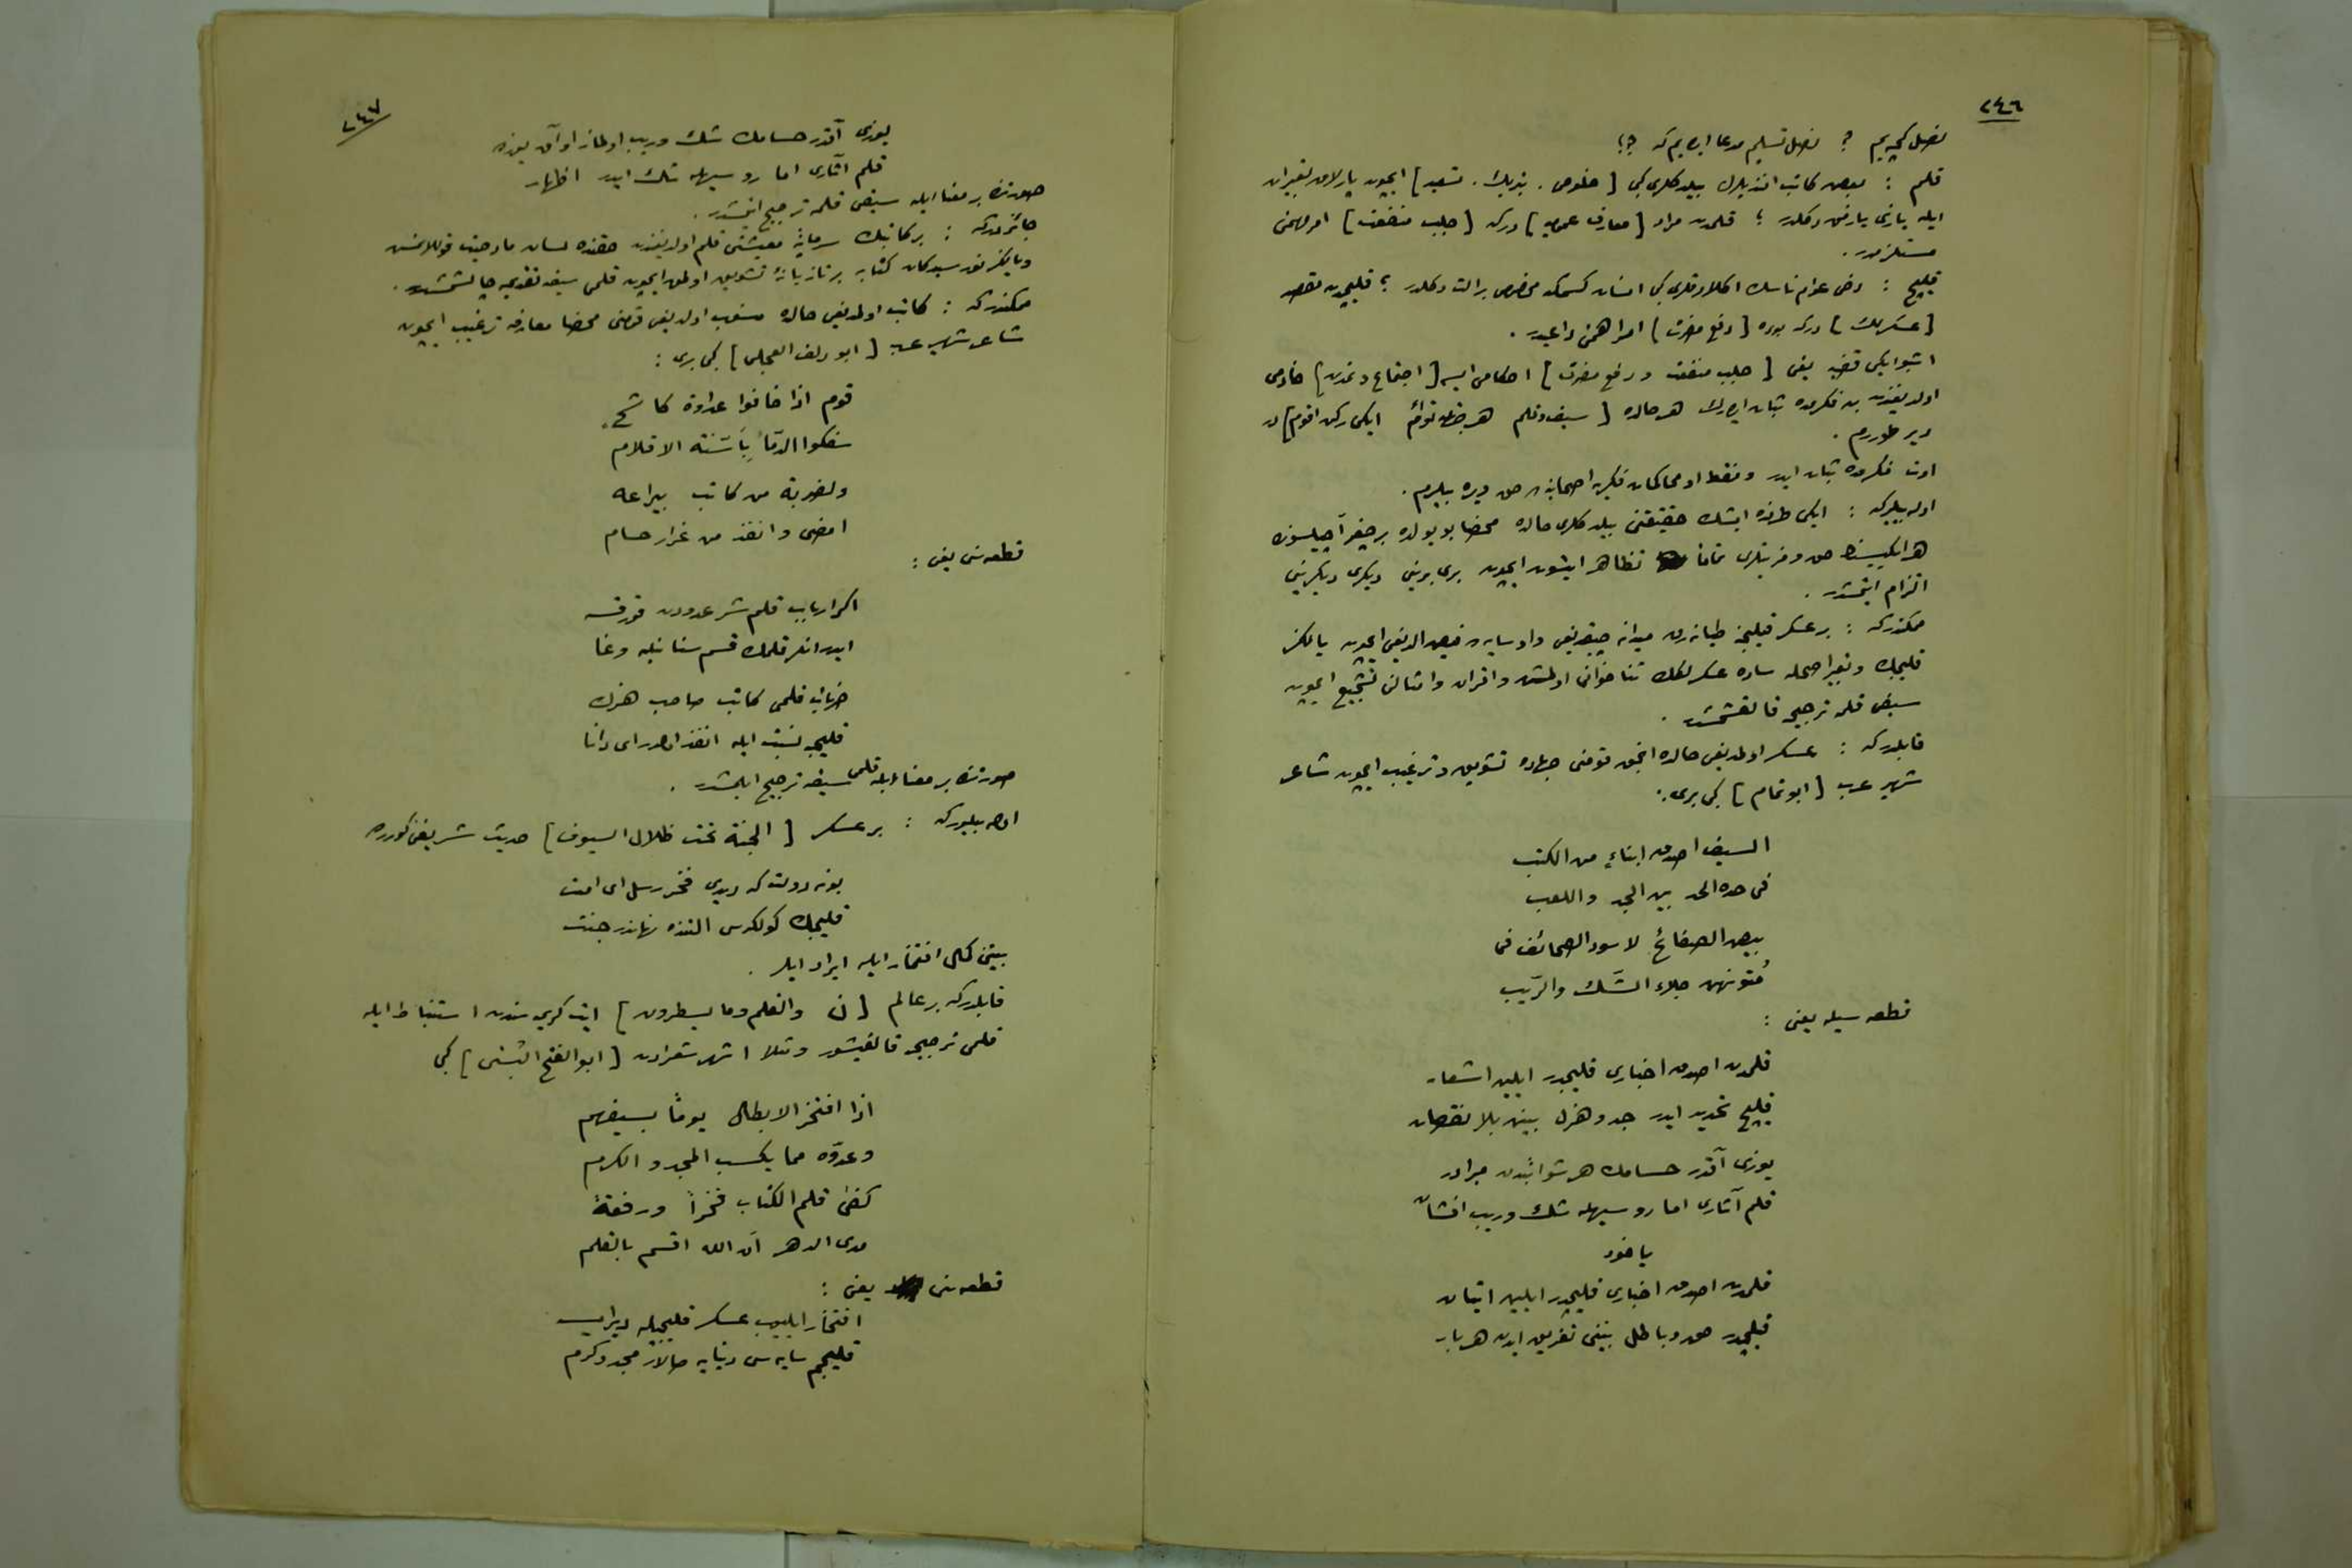 ٢٤٦
نصل كچه يم ؟ نصل تسليم مدعا ايده يم كه ؟!
قلم : بعض كاتب افنديلرك بيلدكلرى كبى [ خلوص . تبريك . تسعيد ] ايچون پارلاق تعبيرلر
ايله يازى يازمق دكلدر ؛ قلمدن مراد [ معارف عموميه ] دركه [ جلب منفعت ] امر مهمنى
مستلزمدر .
قليج : دخى عوام ناسك اكلادقلرى كبى انسان كسمكه مخصوص بر آلت دكلدر ؛ قليجدن مقصد
[ عسكرلك ] دركه بوده [ دفع مضرت ] امر اهمنه داعيدر .
اشبو ايكى قضيه يعنى [ جلب منفعت و دفع مضرت ] احكامى ايسه [ اجتماع و تمدن ] خادمى
اولديغندن بن فكرمده ثبات ايدرك هر حالده [ سيف و قلم هر خطه توأم ايكى ركن اقوم ] در
دير طوررم .
اوت فكرمده ثبات ايدر و فقط او محاكمات فكريه اصحابنه ده حق ويره بيلرم .
اوله بيلير كه : ايكى طرفده ايشك حقيقتنى بيلدكلرى حالده محضا بو يولده بر چغير آچيلسون ده
هر ايكيسنك حق و مزيتلرى تماماً تظاهر ايتسون ايچون برى برينى ديكرى ديكرينى
التزام ايتمشدر .
ممكندر كه : بر عسكر قليجنه طيانه رق ميدانه چيقديغى و او سايه ده فيض آلديغى ايچون يالكز
قليجك و تعبير اصحله ساده عسكرلك ثناخوانى اولمش و اقران و امثالنى تشجيع ايچون
سيفى قلمه ترجيحه قالقشمشدر .
قابلدر كه : عسكر اولمديغى حالده انجق قومنى جهاده تشويق و ترغيب ايچون شاعر
شهير عرب [ ابو تمام ] كبى برى :
السيف اصدق انباءً من الكتب
فى حده الحد بين الجد واللعب
بيض الصفائح لا سود الصحائف فى
متونهن جلاء الشك والريب
قطعه سيله يعنى :
قلمدن اصدق اخبارى قليجدر ايلين اشعار
قليج تحديد ايدر جد و هزل بينن بلا نقصان
يوزى آقدر حسامك هر شوائبدن مبرادر
قلم آثارى اما رو سيهله شك و ريب افشان
ياخود
قلمدن اصدق اخبارى قليجدر ايلين اتيان
قليجدر حق و باطل بيننى تفريق ايدن هر بار
٢٤٧
يوزى آقدر حسامك شك و ريب اولماز او آق يوزده
قلم آثارى اما رو سيهله شك ايدر اظهار
صورتنده بر معنا ايله سيفى قلمه ترجيح ايتمشدر .
جائزدر كه : بر كاتبك سرمايهٔ معيشتى قلم اولديغندن حقنده لسان مادحيت قوللانمش
ممكندر كه : كاتب اولمديغى حالده منسوب اولديغى قومنى محضا معارفه ترغيب ايچون
شاعر شهير عرب [ ابو دلف العجلى ] كبى برى :
قوم اذا خافوا عداوة كاشح
سفكوا الدما باَسنّة الاقلام
ولضربة من كاتب بيراعه
امضى وانفذ من غرار حسام
قطعه سنى يعنى :
اكر ارباب قلم شر عدودن قورقسه
ايدر انلر قلمك قسم سنانيله وغا
ضربات قلمى كاتب صاحب هنرك
قليجه نسبت ايله انفذ اولدر اى دانا
صورتنده بر معنا ايله قلمى سيفه ترجيح ايلمشدر .
اوله بيلور كه : بر عسكر [ الجنة تحت ظلال السيوف ] حديث شريفنى كوره رك
بونه دولت كه ديدى فخر رسل اى امت
قليجك كولكه سى التنده نهاندر جنت
بيتنى كمال افتخار ايله ايراد ايلر .
قابلدر كه بر عالم [ ن والقلم وما يسطرون ] ايت كريمه سندن استنباط ايله
قلمى ترجيحه قالقيشور و مثلا اشهر شعرادن [ ابو الفتح البستى ] كبى
اذا افتخر الابطال يوماً بسيفهم
وعدّوه مما يكسب المجد والكرم
كفى قلم الكتاب فخراً ورفعةً
مدى الدهر اَن الله اقسم بالقلم
قطعه سنى يعنى :
افتخار ايليوب عسكر قليجيله ديرايسه
قليجم سايه سى دنيايه صالار مجد و كرم